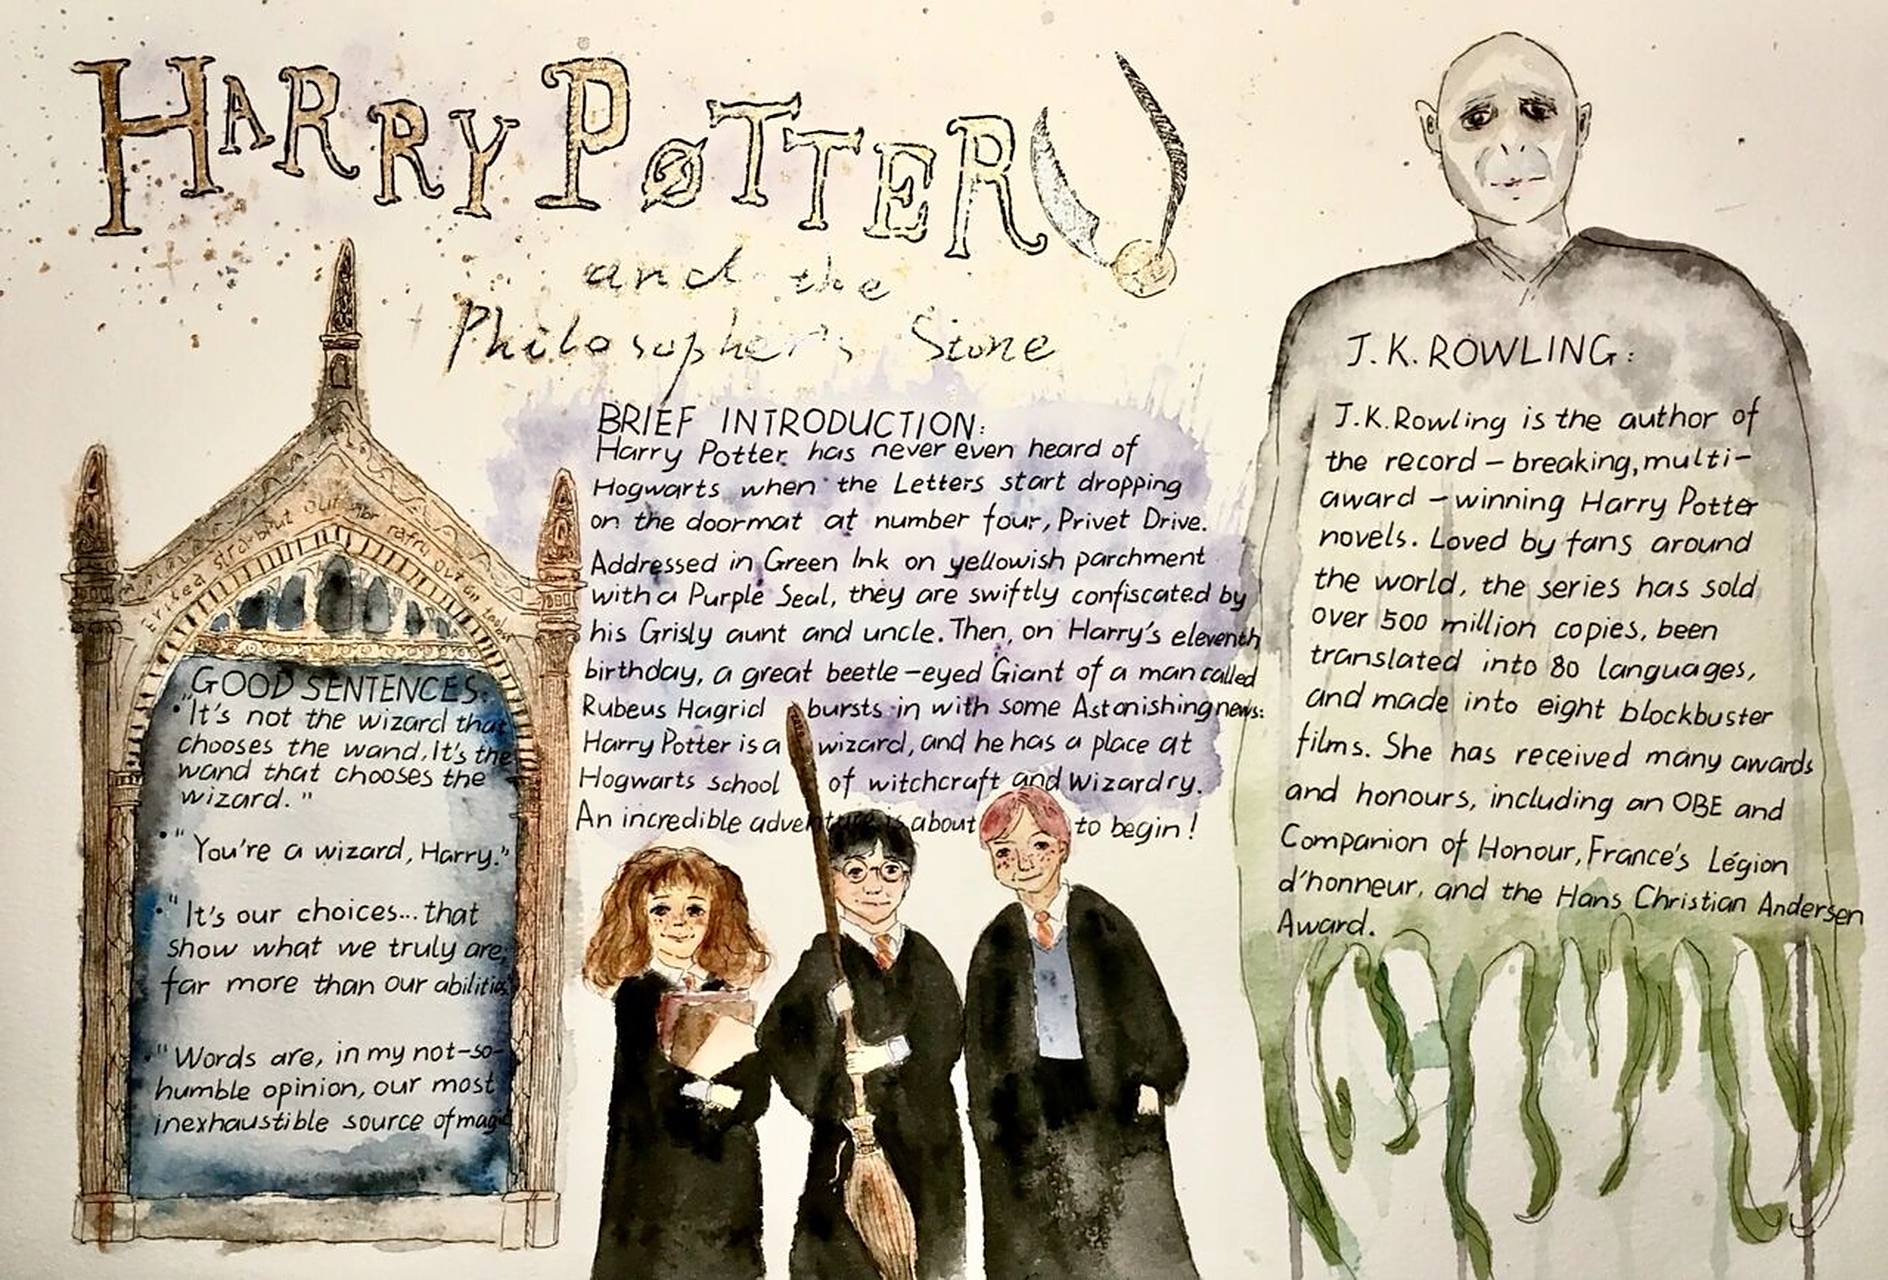 HARRY POTTER
and the
Philosopher's Stone
GOOD SENTENCES:
"It's not the wizard that
chooses the wand. It's the
wand that chooses the
wizard."
"You're a wizard, Harry."
"It's our choices... that
show what we truly are,
far more than our abilities
"Words are, in my not-so-
humble opinion, our most
inexhaustible source of magic
BRIEF INTRODUCTION:
Harry Potter has never even heard of
Hogwarts when the Letters start dropping
on the doormat at number four, Privet Drive.
Addressed in Green Ink on yellowish parchment
with a Purple Seal, they are swiftly confiscated by
his Grisly aunt and uncle. Then, on Harry's eleventh
birthday, a great beetle-eyed Giant of a man called
Rubeus Hagrid bursts in with some Astonishing news:
Harry Potter is a wizard, and he has a place at
Hogwarts school of witchcraft and wizardry.
An incredible adventure is about to begin!
J.K.ROWLING:
J.K.Rowling is the author of
the record-breaking, multi-
award-winning Harry Potter
novels. Loved by fans around
the world, the series has sold
over 500 million copies, been
translated into 80 languages,
and made into eight blockbuster
films. She has received many awards
and honours, including an OBE and
Companion of Honour, France's Légion
d'honneur, and the Hans Christian Andersen
Award.